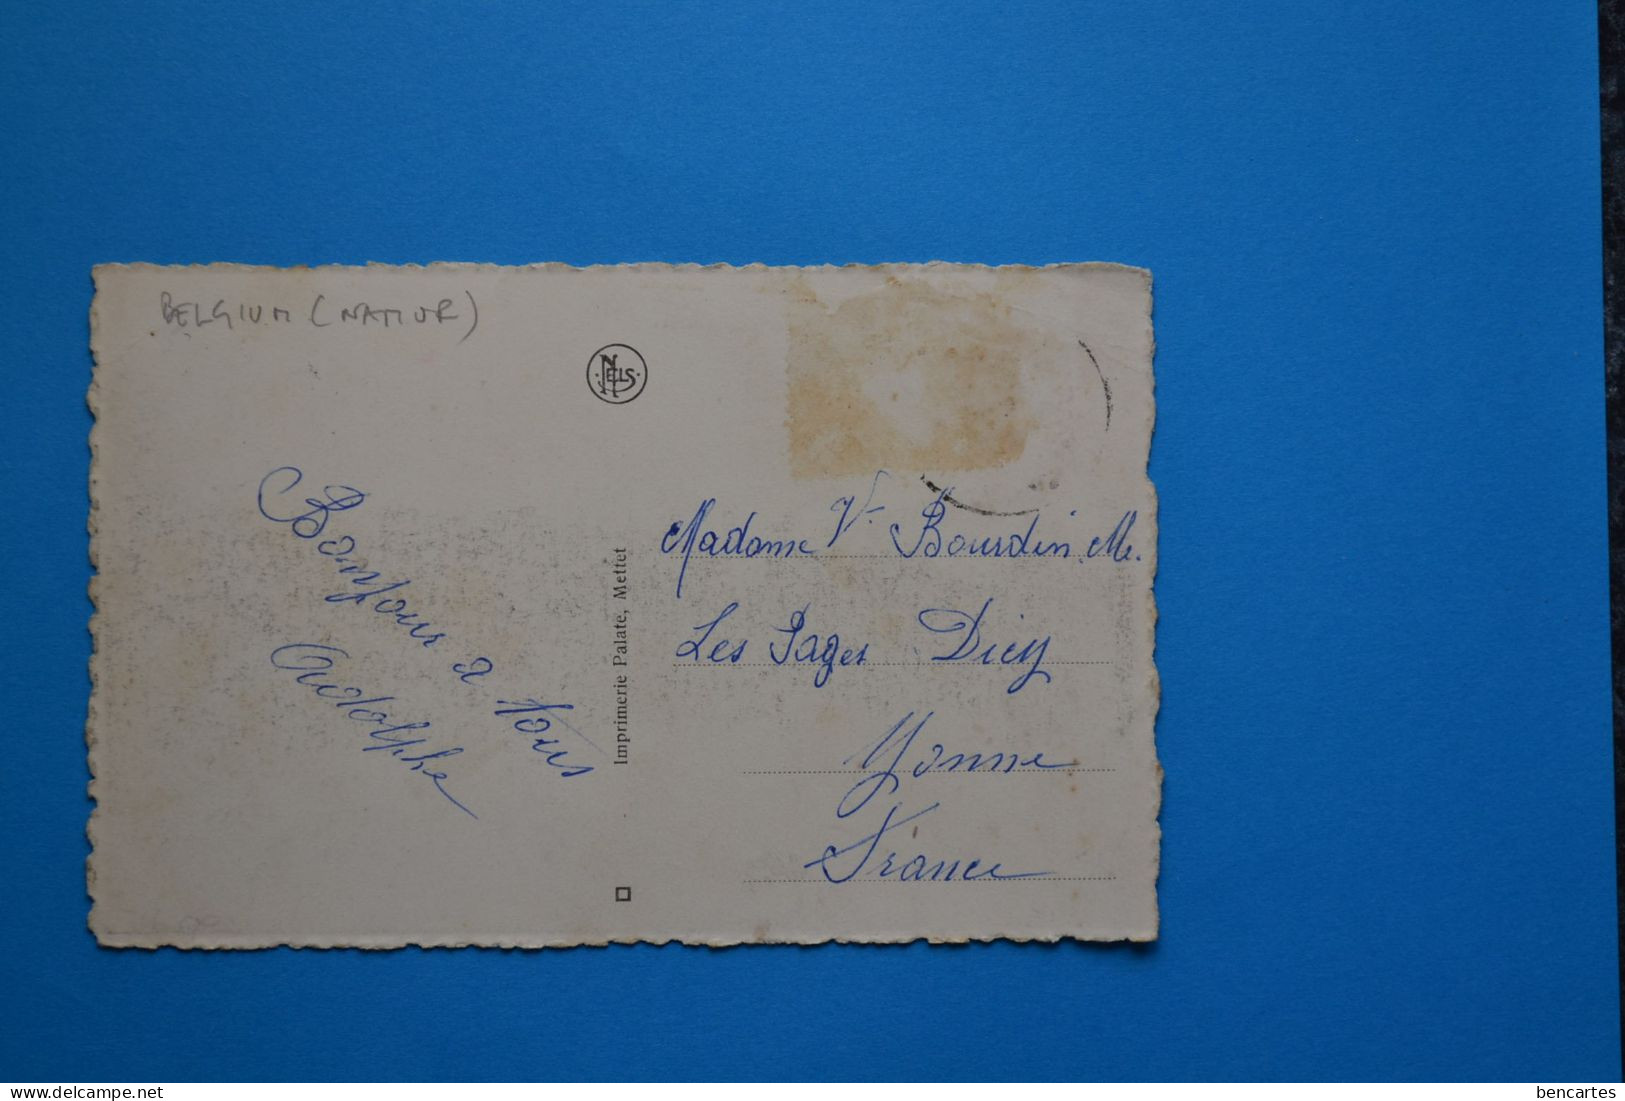 BELGIUM (NAMUR)
NELS
Bonjour à tous
Adolphe
Imprimerie Palate, Mettet
Madame Vve Bourdin M.
Les Pages Dicy
Yonne
France
delcampe.net
bencartes